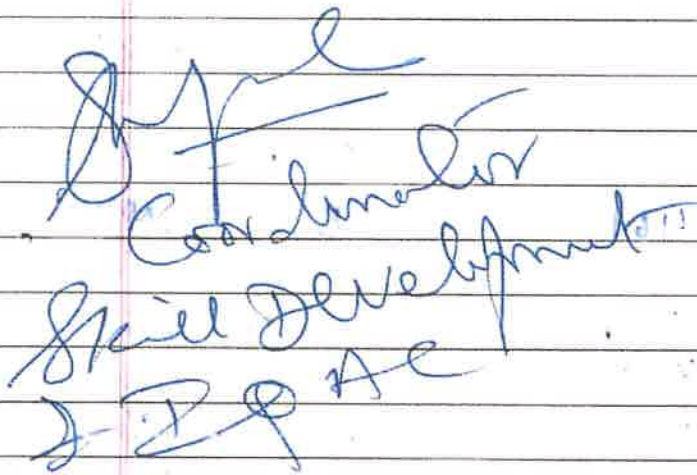 Coordinator
Skill Development
& IQAC